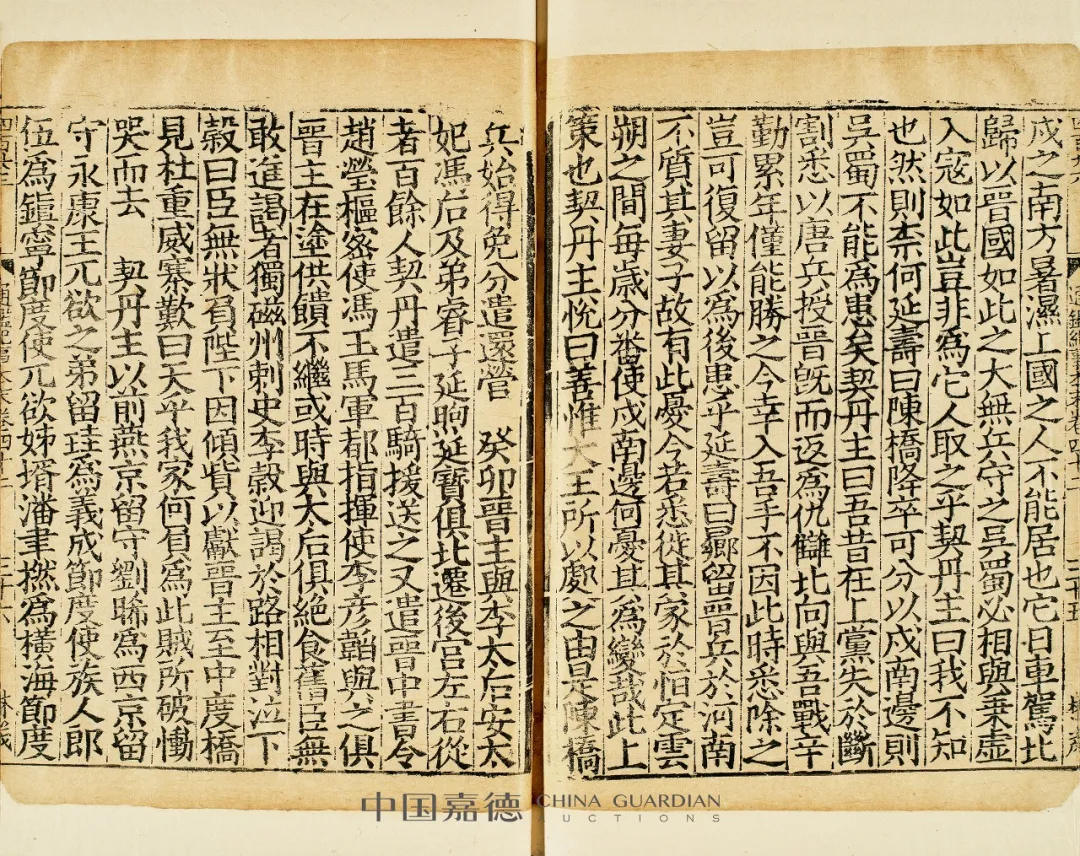 戍之南方暑濕上國之人不能居也它日車駕北
歸以晉國如此之大無兵守之吳蜀必相與乗虛
入寇如此豈非爲它人取之乎契丹主曰我不知
也然則柰何延壽曰陳橋降卒可分以戍南邊則
吳蜀不能爲患矣契丹主曰吾昔在上黨失於斷
割悉以唐兵授晉旣而返爲仇讎北向與吾戰辛
勤累年僅能勝之今幸入吾手不因此時悉除之
豈可復留以爲後患乎延壽曰曏留晉兵於河南
不質其妻子故有此憂今若悉徙其家於恒定雲
朔之間每歲分番使戍南邊何憂其爲變哉此上
策也契丹主悅曰善惟大王所以處之由是陳橋
兵始得免分遣還營 癸卯晉主與李太后安太
妃馮后及弟睿子延煦延寶俱北遷後宮左右從
者百餘人契丹遣三百騎援送之又遣晉中書令
趙瑩樞密使馮玉馬軍都指揮使李彦韜與之俱
晉主在塗供饋不繼或時與太后俱絶食舊臣無
敢進謁者獨磁州刺史李穀迎謁於路相對泣下
穀曰臣無狀負陛下因傾貲以獻晉主至中度橋
見杜重威寨歎曰天乎我家何負爲此賊所破慟
哭而去 契丹主以前燕京留守劉晞爲西京留
守永康王兀欲之弟留珪爲義成節度使族人郎
伍爲鎮寧節度使兀欲姊壻潘聿撚爲橫海節度
中国嘉德 CHINA GUARDIAN
AUCTIONS